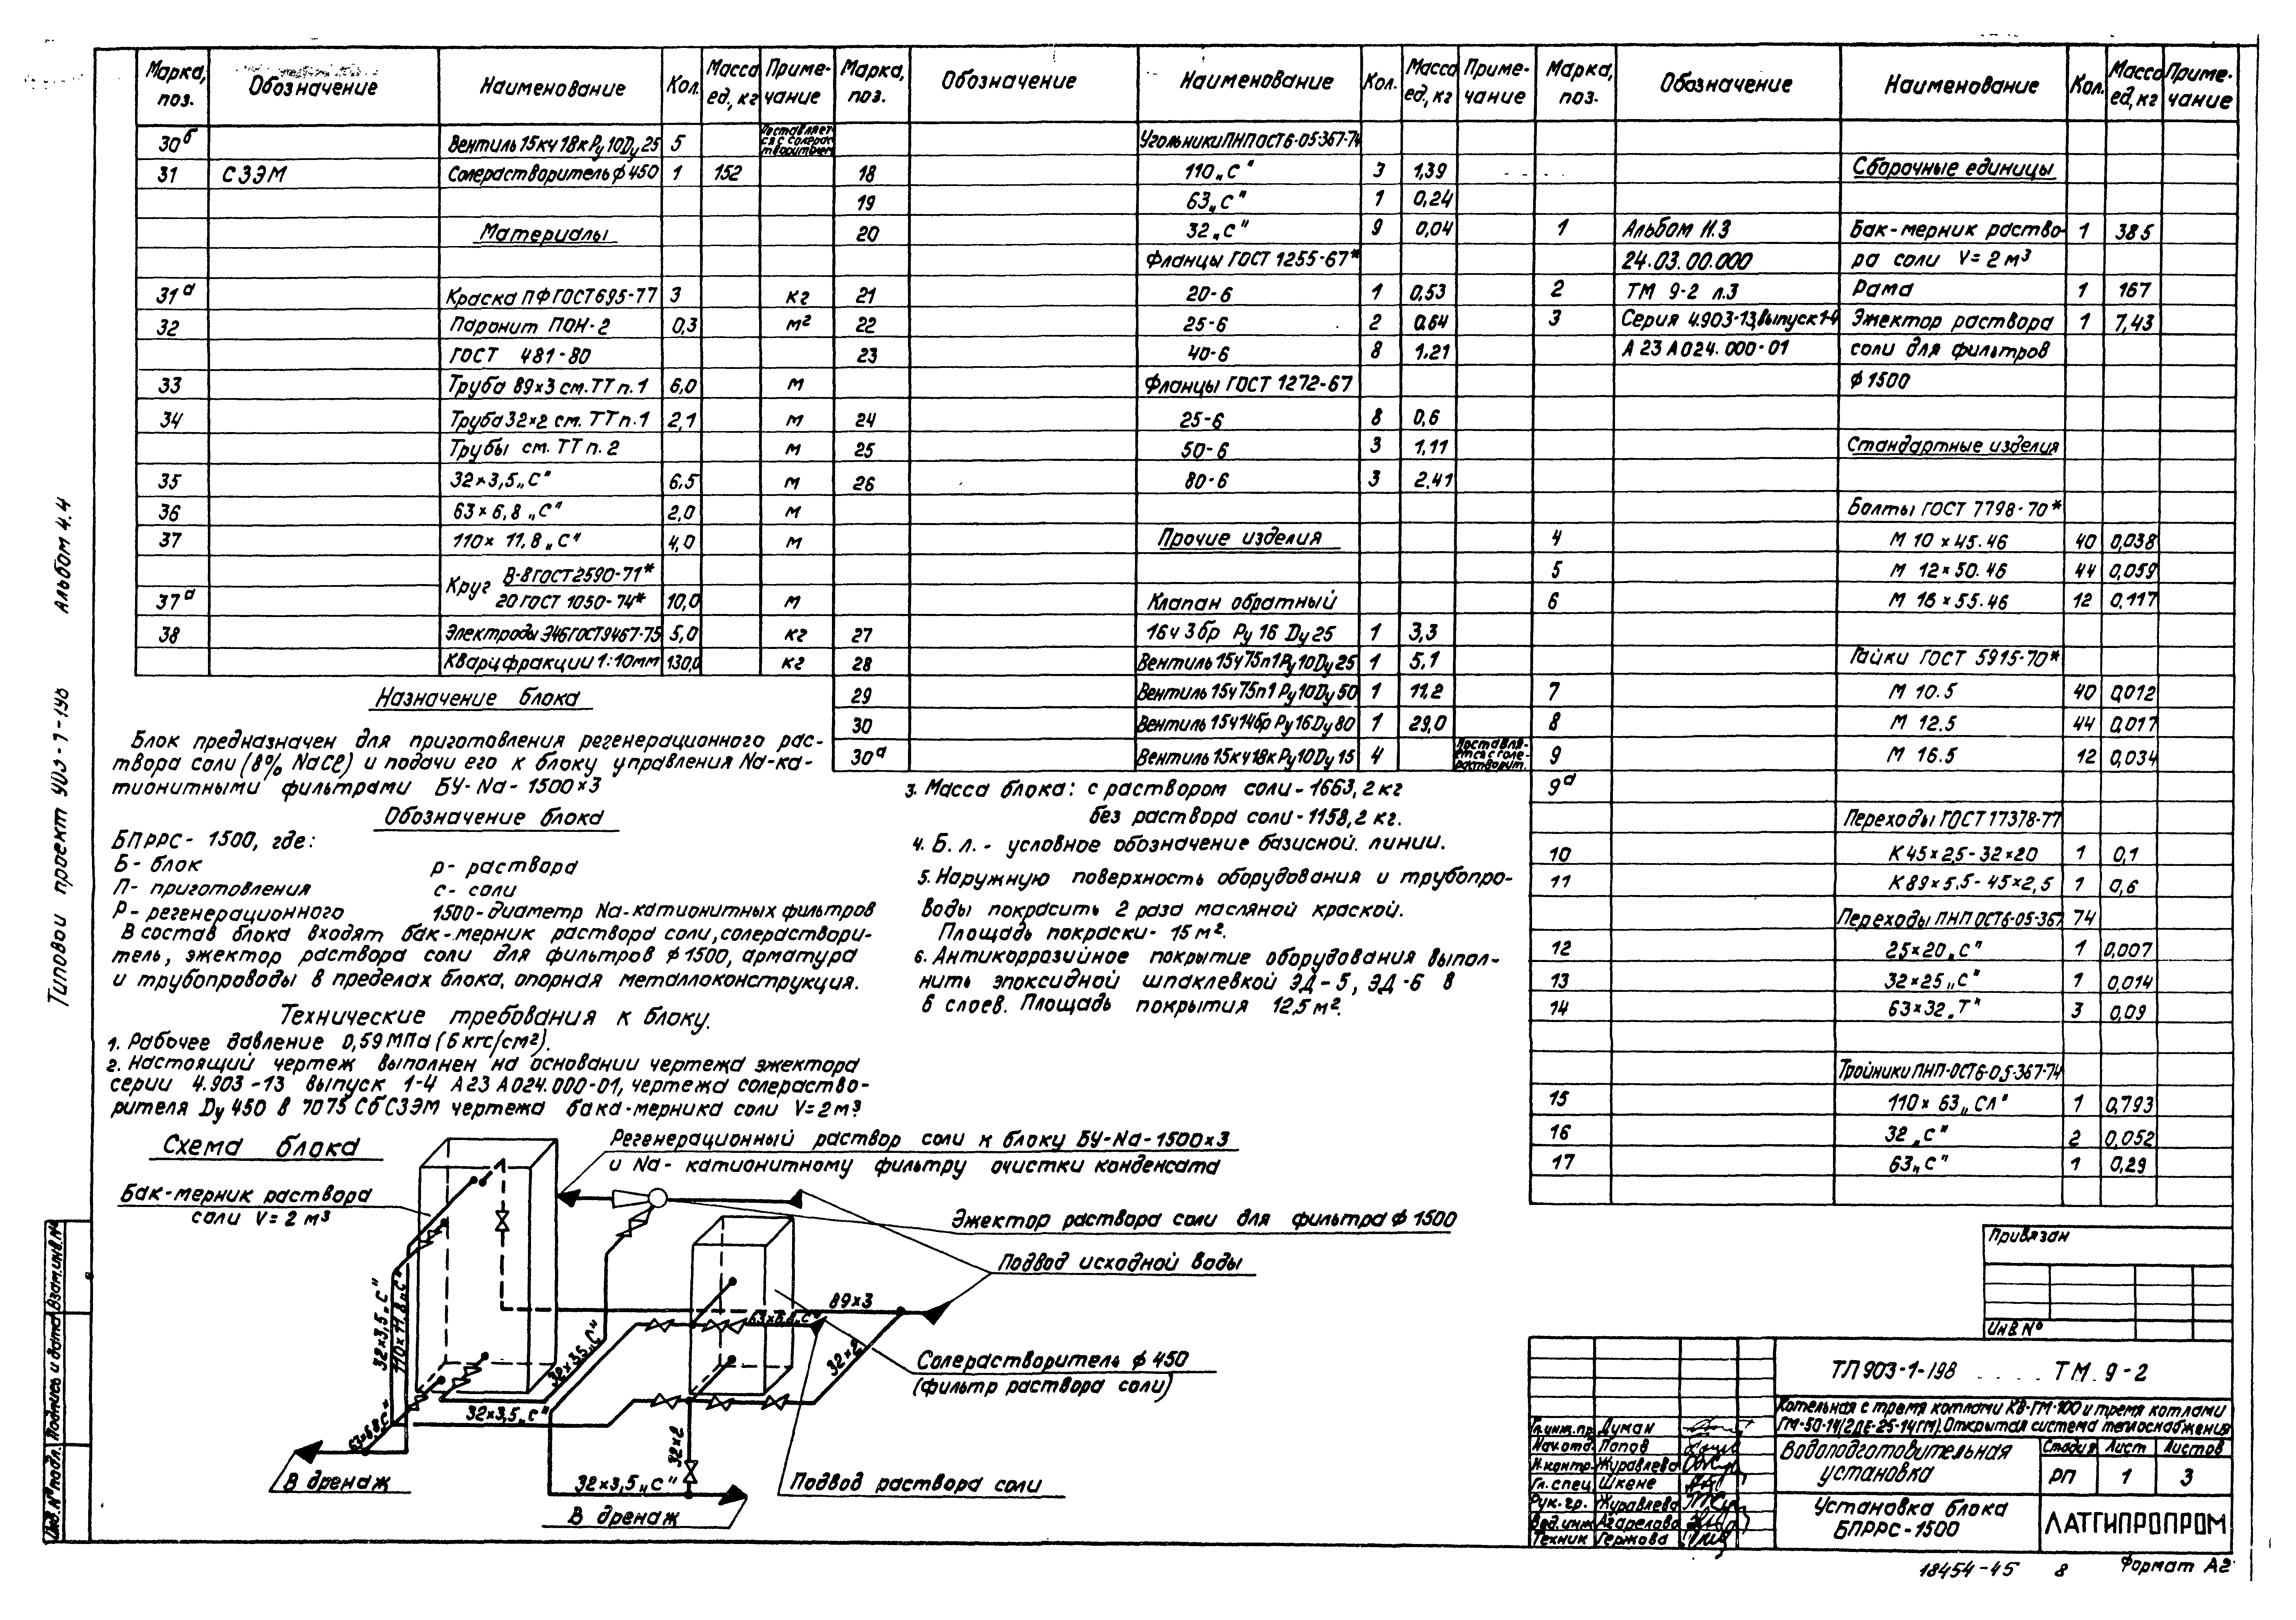 Марка, поз. Обозначение Наименование Кол. Масса ед, кг Приме-чание
30б Вентиль 15кч 18к Ру 10 Ду 25 5
31 СЗЭМ Солерастворитель ф 450 1 152
Материалы
31а Краска ПФ ГОСТ 695-77 3 кг
32 Паронит ПОН-2 0,3 м²
ГОСТ 481-80
33 Труба 89×3 см. ТТ п.1 6,0 м
34 Труба 32×2 см. ТТ п.1 2,1 м
Трубы см. ТТ п.2 м
35 32×3,5 „С" 6.5 м
36 63×6,8 „С" 2,0 м
37 110×11,8 „С" 4,0 м
Круг В-8 ГОСТ 2590-71*
37а 20 ГОСТ 1050-74* 10,0 м
38 Электроды Э46 ГОСТ 9467-75 5,0 кг
Кварц фракции 1÷10мм 130,0 кг
Назначение блока
Блок предназначен для приготовления регенерационного рас-
твора соли (8% NaCl) и подачи его к блоку управления Na-ка-
тионитными фильтрами БУ-Na-1500×3
Обозначение блока
БПРРС-1500, где:
Б- блок р- раствора
П- приготовления с- соли
Р- регенерационного 1500-диаметр Na-катионитных фильтров
В состав блока входят бак-мерник раствора соли, солераствори-
тель, эжектор раствора соли для фильтров ф 1500, арматура
и трубопроводы в пределах блока, опорная металлоконструкция.
Технические требования к блоку.
1. Рабочее давление 0,59 МПа (6 кгс/см²).
2. Настоящий чертеж выполнен на основании чертежа эжектора
серии 4.903-13 выпуск 1-4 А23 А024.000-01, чертежа солераство-
рителя Ду 450 в 7075 Сб СЗЭМ чертежа бака-мерника соли V=2м³
Марка, поз. Обозначение Наименование Кол. Масса ед, кг Приме-чание
Угольники ПНП ОСТ 6-05-367-74
18 110 „С" 3 1,39
19 63 „С" 1 0,24
20 32 „С" 9 0,04
Фланцы ГОСТ 1255-67*
21 20-6 1 0,53
22 25-6 2 0,64
23 40-6 8 1.21
Фланцы ГОСТ 1272-67
24 25-6 8 0,6
25 50-6 3 1,11
26 80-6 3 2,41
Прочие изделия
Клапан обратный
27 16ч 3бр Ру 16 Ду 25 1 3,3
28 Вентиль 15ч75п1 Ру 10 Ду 25 1 5,1
29 Вентиль 15ч75п1 Ру 10 Ду 50 1 11.2
30 Вентиль 15ч14бр Ру 16 Ду 80 1 29,0
30а Вентиль 15кч18к Ру 10 Ду 15 4
3. Масса блока: с раствором соли - 1663,2 кг
без раствора соли - 1158,2 кг.
4. Б. л. - условное обозначение базисной линии.
5. Наружную поверхность оборудования и трубопро-
воды покрасить 2 раза масляной краской.
Площадь покраски - 15 м².
6. Антикоррозийное покрытие оборудования выпол-
нить эпоксидной шпаклевкой ЭД-5, ЭД-6 в
6 слоев. Площадь покрытия 12,5 м².
Марка, поз. Обозначение Наименование Кол. Масса ед, кг Приме-чание
Сборочные единицы
1 Альбом 11.3 Бак-мерник раство- 1 385
24.03.00.000 ра соли V=2 м³
2 ТМ 9-2 л.3 Рама 1 167
3 Серия 4.903-13, выпуск 1-4 Эжектор раствора 1 7,43
А 23 А 024.000-01 соли для фильтров
ф 1500
Стандартные изделия
Болты ГОСТ 7798-70*
4 М 10×45.46 40 0,038
5 М 12×50.46 44 0,059
6 М 16×55.46 12 0,117
Гайки ГОСТ 5915-70*
7 М 10.5 40 0,012
8 М 12.5 44 0,017
9 М 16.5 12 0,034
9а
Переходы ГОСТ 17378-77
10 К 45×2,5-32×20 1 0,1
11 К 89×5,5-45×2,5 1 0,6
Переходы ПНП ОСТ 6-05-367 74
12 25×20 „С" 1 0,007
13 32×25 „С" 1 0,014
14 63×32 „Т" 3 0,09
Тройники ПНП-ОСТ 6-05-367-74
15 110×63 „СЛ" 1 0,793
16 32 „С" 2 0,052
17 63 „С" 1 0,29
Схема блока
Бак-мерник раствора
соли V=2 м³
Регенерационный раствор соли к блоку БУ-Na-1500×3
и Na-катионитному фильтру очистки конденсата
Эжектор раствора соли для фильтра ф 1500
Подвод исходной воды
Солерастворитель ф 450
(фильтр раствора соли)
Подвод раствора соли
В дренаж
В дренаж
32×3,5 „С"
110×11,8 „С"
63×6,8 „С"
32×3,5 „С"
32×3,5 „С"
89×3
63×6,8 „С"
32×2
32×2
32×3,5 „С"
Альбом 4.4
Типовой проект 903-1-198
Взам.инв.№
Подпись и дата
Инв.№ подл.
Привязан
Инв №
ТП 903-1-198 ТМ 9-2
Котельная с тремя котлами КВ-ГМ-100 и тремя котлами
ГМ-50-14 (2ДЕ-25-14ГМ). Открытая система теплоснабжения
Гл.инж.пр. Думан
Нач.отд. Попов
Н.контр. Журавлева
Гл. спец. Шкене
Рук. гр. Журавлева
Вед.инж. Агарелова
Техник Гержова
Водоподготовительная
установка
Стадия Лист Листов
РП 1 3
Установка блока
БПРРС-1500
ЛАТГИПРОПРОМ
18454-45 8 Формат А2